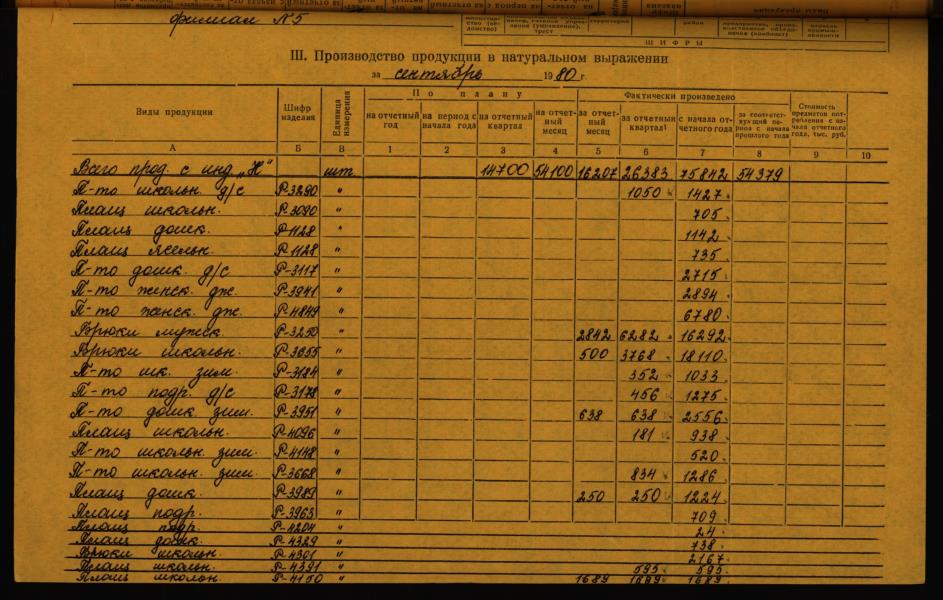 филиал N5
ШИФРЫ
III. Производство продукции в натуральном выражении
за сентябрь 1980 г.
Виды продукции Шифр изделия Единица измерения По плану Фактически произведено Стоимость предметов потребления с начала отчетного года, тыс. руб.
на отчетный год на период с начала года на отчетный квартал на отчетный месяц за отчетный месяц за отчетный квартал с начала отчетного года за соответствующий период с начала прошлого года
А Б В 1 2 3 4 5 6 7 8 9 10
Всего прод. с инд. „Н" шт 14700 54100 16207 26383 75842 54379
П-то школьн. д/с Р-3290 " 1050 1427
Плащ школьн. Р-3090 " 705
Плащ дошк. Р-1128 " 1142
Плащ ясельн. Р-1128 " 735
П-то дошк. д/с Р-3117 " 2715
П-то женск. дж. Р-3941 " 2894
П-то женск. дж. Р-4849 " 6780
Брюки мужск. Р-3250 " 2842 6282 16292
Брюки школьн. Р-3055 " 500 3768 18110
П-то шк. зим. Р-3184 " 352 1033
П-то подр. д/с Р-3178 " 456 1275
П-то дошк. зим. Р-3951 " 638 638 2556
Плащ школьн. Р-4096 " 181 938
П-то школьн. зим. Р-4148 " 520
П-то школьн. зим. Р-3668 " 834 1286
Плащ дошк. Р-3989 " 250 250 1224
Плащ подр. Р-3963 " 709
Плащ подр. Р-4204 " 24
Плащ дошк. Р-4329 " 738
Брюки школьн. Р-4301 " 2167
Плащ школьн. Р-4391 " 595 595
Плащ школьн. Р-4150 " 1689 1689 1689